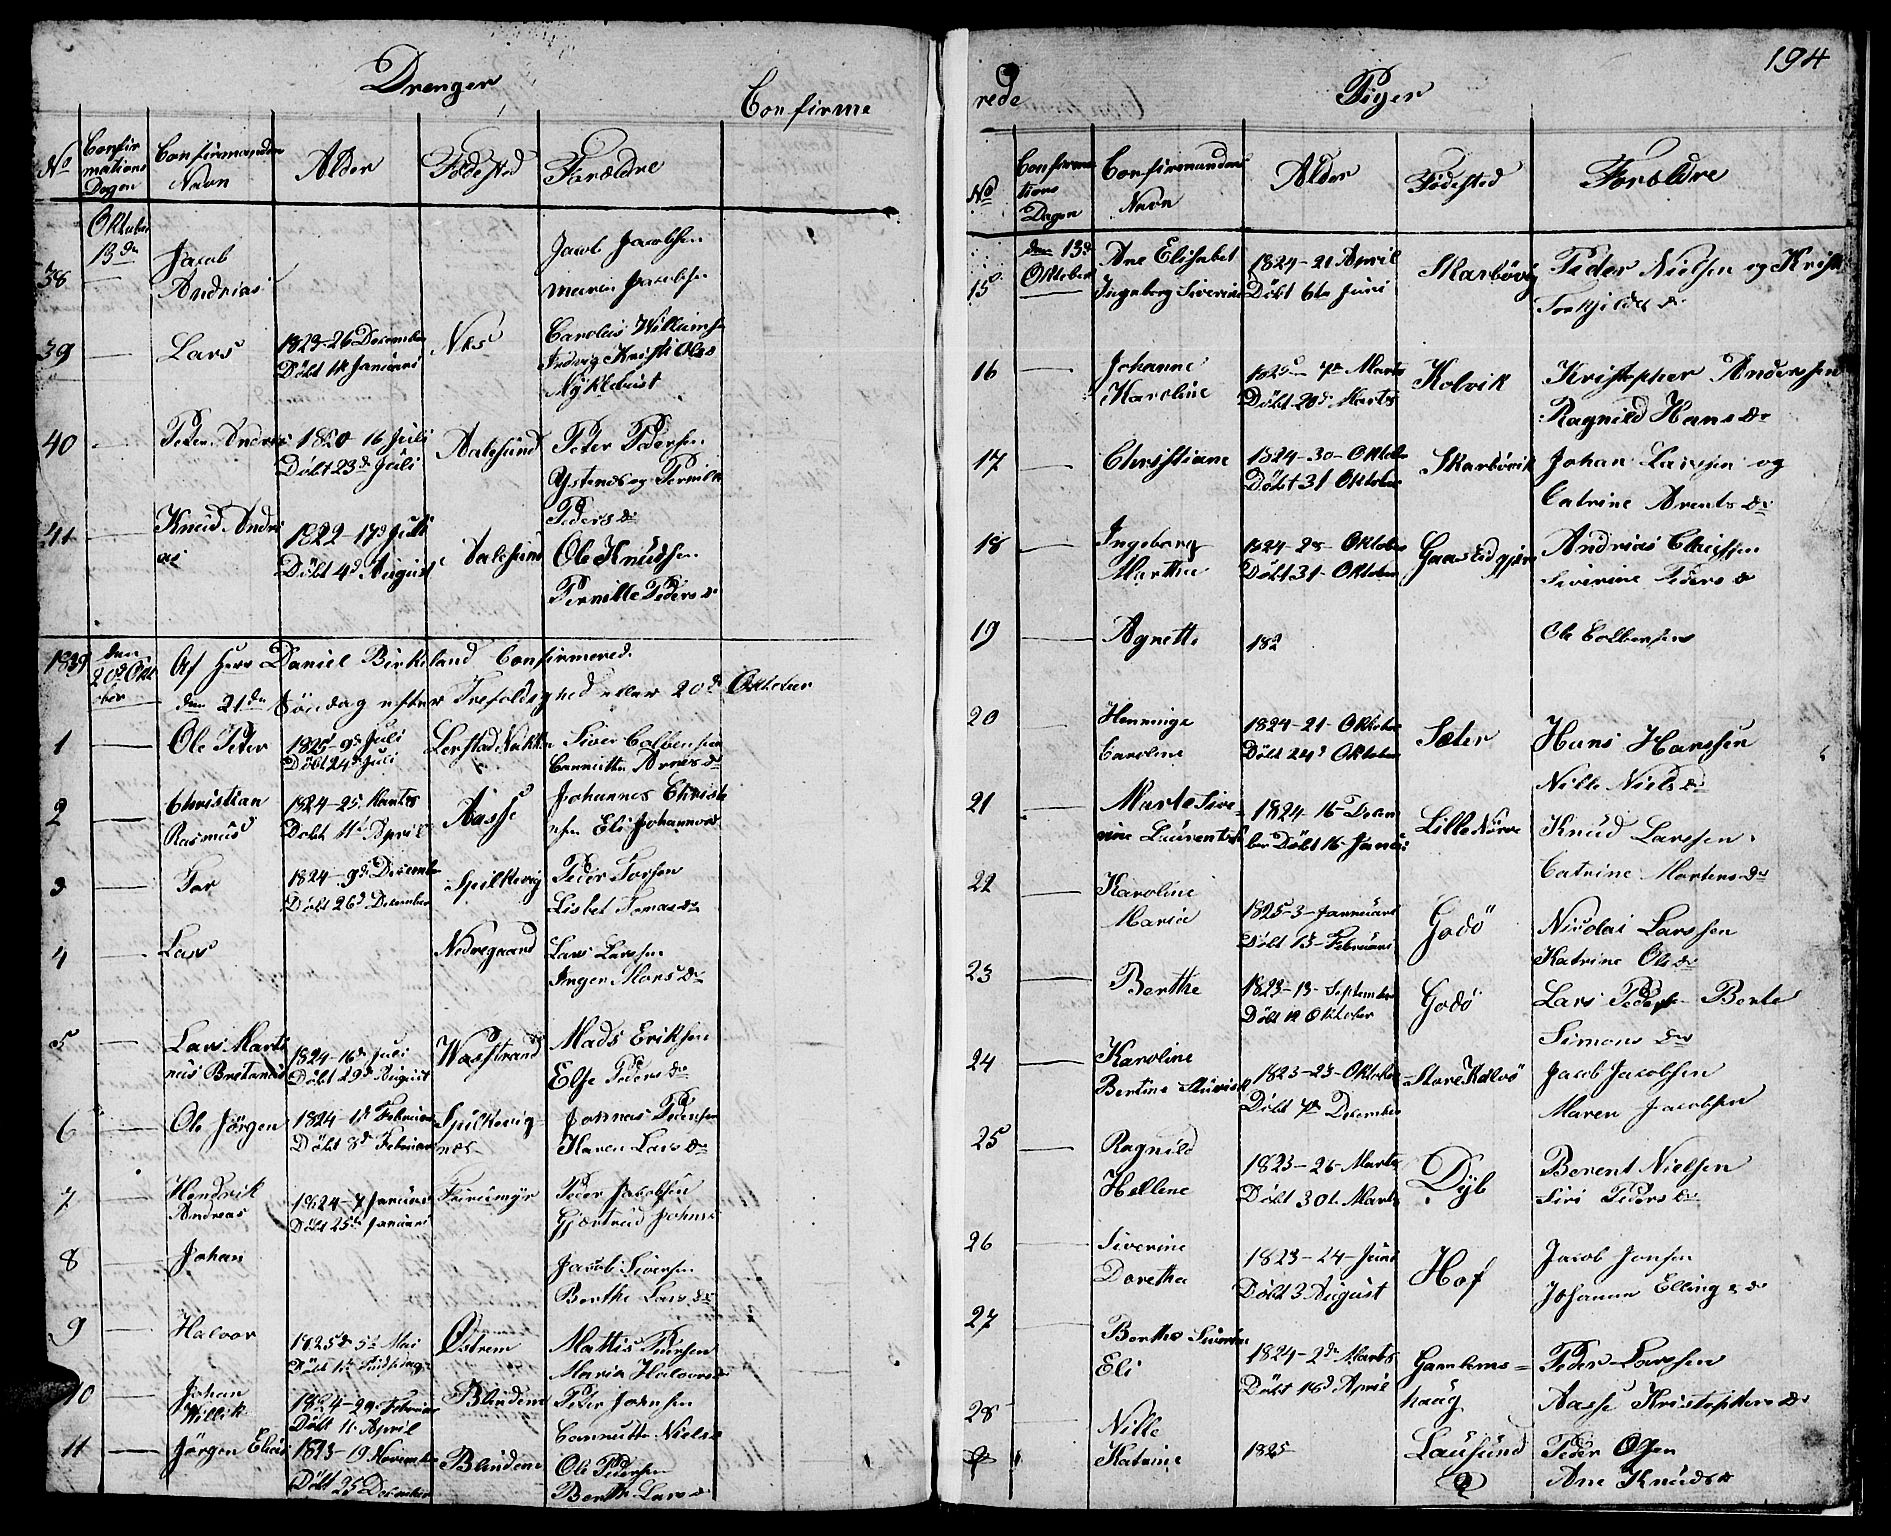 Drenger
Confirme
No
Confir
mations
Dagen
Confirmanden
Navn
Alder
Fødested
Forældre
Oktober
13de
38
Jacob
Andrias
Jacob Jacobsen
Maren Jacobsen
39
Lars
1823-26 December
Døbt 1te Januari
Nes
Carolus Willumsen
Kristi Olsd
Myklebust
40
Peter Andrias
1820-16 Juli
Døbt 23de Juli
Aalesund
Peter Pedersen
Ystenes og Pernille
Pedersdr
41
Knud Andri
as
1822-17de Juli
Døbt 4de August
Aalesund
Ole Knudsen
Pernille Pedersdr
1839
den
20de Okt
ber
Af Herr Daniel Birkeland Confirmered
den 21de Söndag efter Trefoldighed eller 20de Oktober
1
Ole Peter
1825-9de Juli
Døbt 24de Juli
Lerstad
Siver Colbensen
Arnesdr
2
Christian
Rasmus
1824-25 Martes
Døbt 11te April
Aasse
Johannes Christe
nsen Eli Johannesd
3
Tor
1824-9de December
Døbt 26de December
Spilkevig
Peder Torsen
Lisbet Tomasdr
4
Lars
Nedregaard
Lars Larssen
Inger Morsdr
5
Lars Marti
nus Bretanus
1824-16de Juli
Døbt 29de August
Wasstrand
Mads Eriksen
Else Pedersdr
6
Ole Jörgen
1824-1te Februar
Døbt 8de Februar
Spilkevig-
nes
Johannes Pedersen
Karen Larsdr
7
Hendrik
Andreas
1824-7 Januar
Døbt 25de Januari
Furumyr
Peder Jacobsen
Gjertrud Johns
8
Johan
Jacob Siversen
Berthe Larsdr
9
Halvor
1825 5te Mai
Døbt 1te
Østrem
Mattis Iversen
Maria Halvorsdr
10
Johan
Willik
1824-29 Februar
Døbt 11 April
Blindem
Peter Johnsen
Nielsd
11
Jörgen Elias
1823-19 November
Døbt 25 December
Blindem
Ole Pedersen
Berthe Larsdr
194
rede
Piger
No
Confirma
tions
Dagen
Confirmandens
Navn
Alder
Fødested
Forældre
15
den 13de
Oktober
Ane Elisabet
Ingeborg Siverine
1824-21 April
Døbt 6te Juni
Skarbøvig
Peder Nielsen og Kristi
Torkildsdr
16
Johanne
Karoline
1825-7de Marts
Døbt 20de Marts
Kolvik
Kristopher Andersen
Ragnild Hansdr
17
Christiane
1824-30-Oktober
Døbt 31 Oktober
Skarbövik
Johan Larssen og
Catrine Arentsdr
18
Ingeborg
Martha
1824-28-Oktober
Døbt 31-Oktober
Gaaseidgjere
Andrias Claussen
Siverine Pedersdr
19
Agnette
182
Ole Colbensen
20
Henninge
Caroline
1824-21-Oktober
Døbt 24de Oktober
Sæter
Hans Hanssen
Nille Nielsdr
21
Marte Sive-
rine Laurentse
1824 16-Decem
ber Døbt 16 Januari
Lille Nörve
Knud Larssen
Catrine Mortensdr
22
Karoline
Maria
1825-3-Januari
Døbt 13-Februari
Godö
Nicolai Larssen
Katrine Olsdr
23
Berthe
1823-13-September
Døbt 12 Oktober
Godö
Lars Pedersen Berte
Simonsdr
24
Karoline
Bertine
1823-23-Oktober
Døbt 7de December
Store Kalvö
Jacob Jacobsen
Maren Jacobsen
25
Ragnild
Hellene
1823-26-Marts
Døbt 30te Marts
Dyb
Berent Nielsen
Siri Pedersdr
26
Siverine
Dorethea
1823-24-Juni
Døbt 3 August
Hof
Jacob Jonsen
Johanne Ellingsdr
27
Berthe Siverine
Eli
1824-2de Marts
Døbt 18de April
Gamlems=
haug
Peder Larssen
Aasse Kristophersdr
28
Nille
Katrine
1825
Lausund
Peder Olsen
Ane Knudsdr